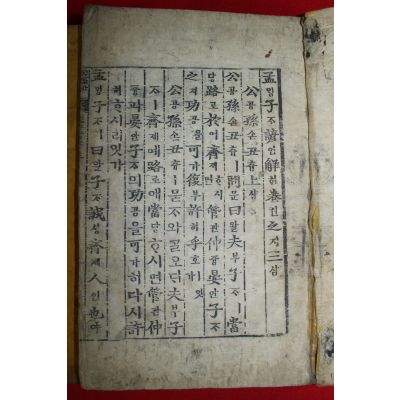 孟ᄆᆡᆼ子ᄌᆞ諺언解ᄒᆡ卷권之지三삼
公공孫손丑츄上샹
公공孫손丑츄ㅣ問문曰왈夫부子ᄌᆞㅣ當
당路로於어齊졔면管관仲듕晏안子ᄌᆞ
之지功공을可가復부許허乎호잇가
公공孫손丑츄ㅣ묻ᄌᆞ와ᄀᆞᆯ오ᄃᆡ夫부子
ᄌᆞㅣ齊졔예路로애當당ᄒᆞ시면管관仲
듕과晏안子ᄌᆞ의功공을可가히다시許
허ᄒᆞ시리잇가
孟ᄆᆡᆼ子ᄌᆞㅣ曰왈子ᄌᆞ誠셩齊졔人인也야